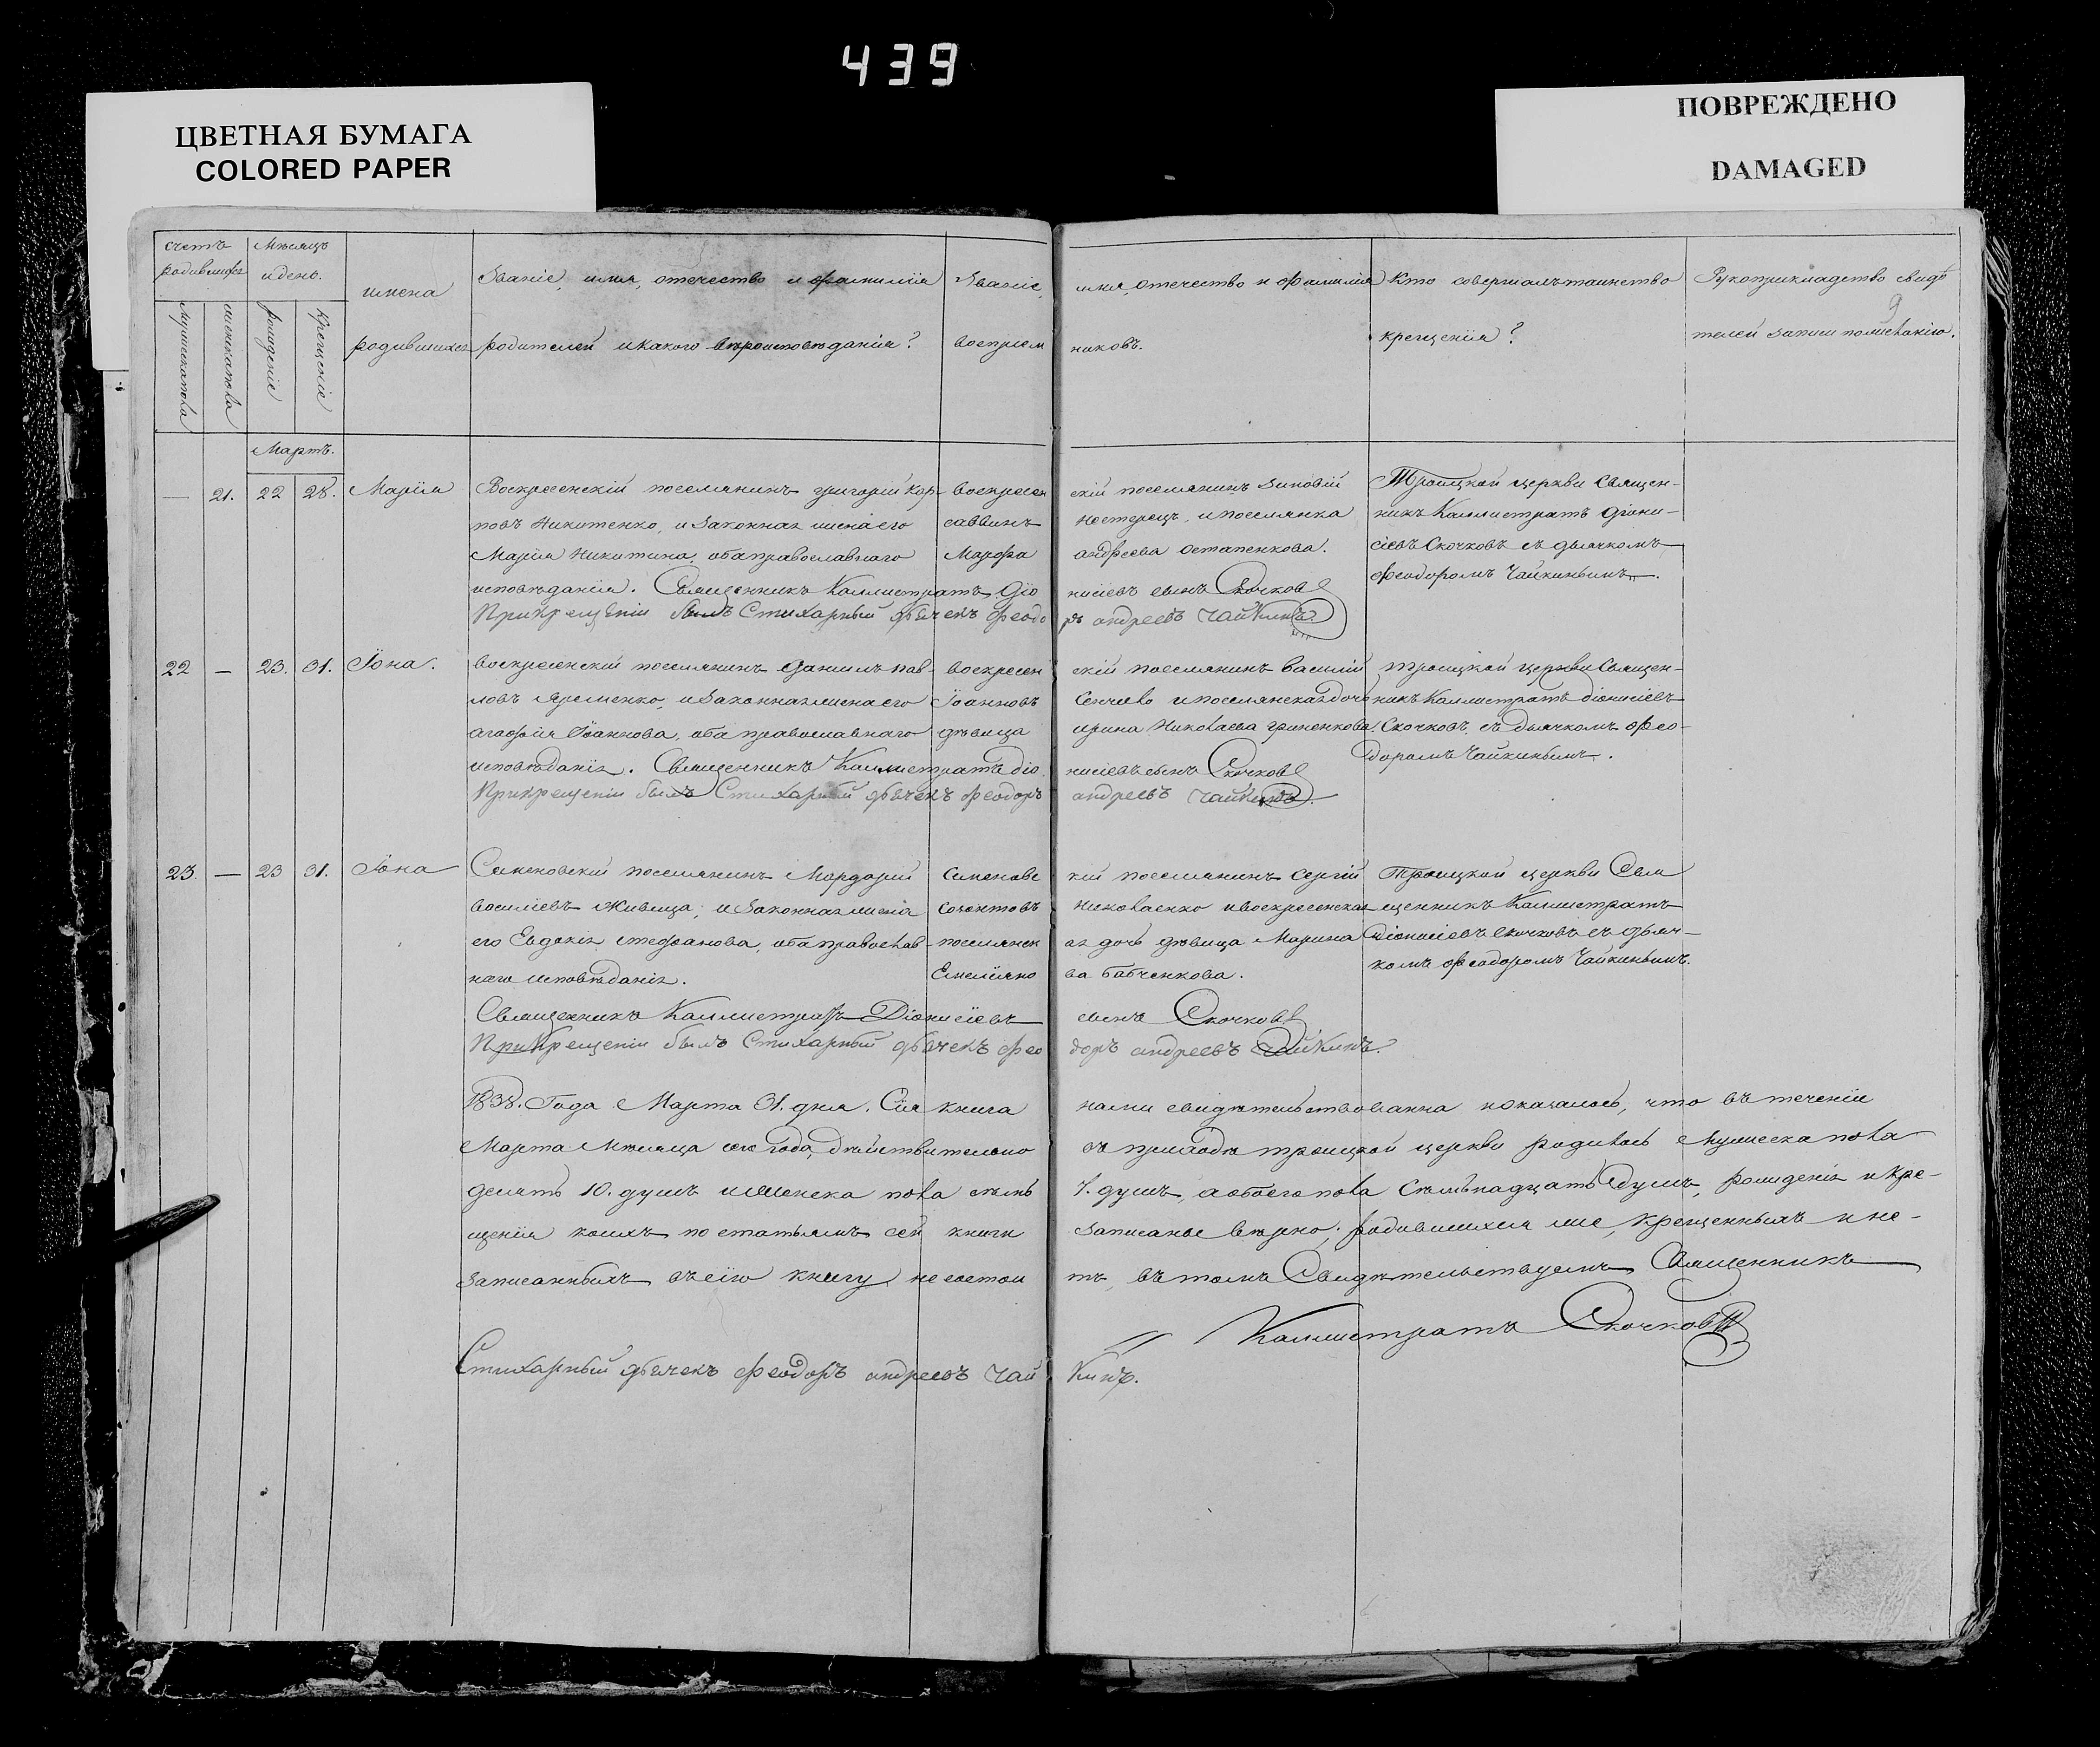 439
ЦВЕТНАЯ БУМАГА
COLORED PAPER
ПОВРЕЖДЕНО
DAMAGED
счетъ родившихся
Мѣсяцъ и день.
имена родившихся
Званіе, имя, отечество и фамилія родителей и какого вѣроисповѣданія?
Званіе, имя, отечество и фамилія воспріемниковъ.
Кто совершалъ таинство крещенія?
Рукоприкладство свидѣтелей записи по желанію.
9
мужеска пола
женска пола
рожденіе
крещеніе
Мартъ.
— 21. 22 28. Марія
Воскресенскій поселянинъ григорій Кар-
повъ Никитенко, и законная жена его
Марія Никитина, оба православнаго
исповѣданія. Священникъ Каллистратъ Діонисіевъ сынъ Скочковъ
При крещеніи былъ Стихарный дьячекъ феодоръ андреевъ Чайкинъ
воскресенскій поселянинъ Зиновій
саввинъ Нестерецъ, и поселянка
Марфа андреева остапенкова.
Троицкой церкви Священ-
никъ Каллистратъ Діони-
сіевъ Скочковъ съ дьячкомъ
феодоромъ Чайкинымъ.
22 — 23. 31. Іона.
воскресенскій поселянинъ Даніилъ пав-
ловъ Яременко, и законная жена его
агафія Іоаннова, оба православнаго
исповѣданія. Священникъ Каллистратъ діонисіевъ сынъ Скочковъ
При крещеніи былъ Стихарный дьячекъ феодоръ андреевъ Чайкинъ
воскресенскій поселянинъ василій
Іоанновъ и поселянская дочь
дѣвица ирина Николаева гриненкова.
троицкой церкви Священ-
никъ Каллистратъ діонисіевъ
Скочковъ, съ дьячкомъ фео-
доромъ Чайкинымъ.
23. — 23 31. Іона
Семеновскій поселянинъ Мардарій
василіевъ Живица, и законная жена
его Евдокія стефанова, оба православ-
наго исповѣданія.
Священникъ Каллистратъ Діонисіевъ сынъ Скочковъ
При крещеніи былъ Стихарный дьячекъ феодоръ андреевъ Чайкинъ.
Семеновскій поселянинъ Сергій
Созонтовъ Николаенко и воскресенская
поселянская дочь дѣвица Марина
Емеліянова бабченкова.
Троицкой церкви Свя
щенникъ Каллистратъ
Діонисіевъ Скочковъ съ дьяч-
комъ феодоромъ Чайкинымъ.
1838. Года Марта 31. дня. Сія книга нами свидѣтельствованна показалось, что въ теченіи
Марта Мѣсяца сего года, дѣйствительно въ приходѣ троицкой церкви родилось Мужеска пола
десять 10. душъ и Женска пола семь 7. душъ, а обоего пола Семьнадцать душъ, рожденія и кре-
щенія коихъ по статьямъ сей книги записаны вѣрно; родившихся же, крещенныхъ и не-
записанныхъ въ сію книгу не состоитъ, въ томъ Свидѣтельствуемъ Священникъ
Каллистратъ Скочковъ
Стихарный дьячекъ феодоръ андреевъ Чайкинъ.